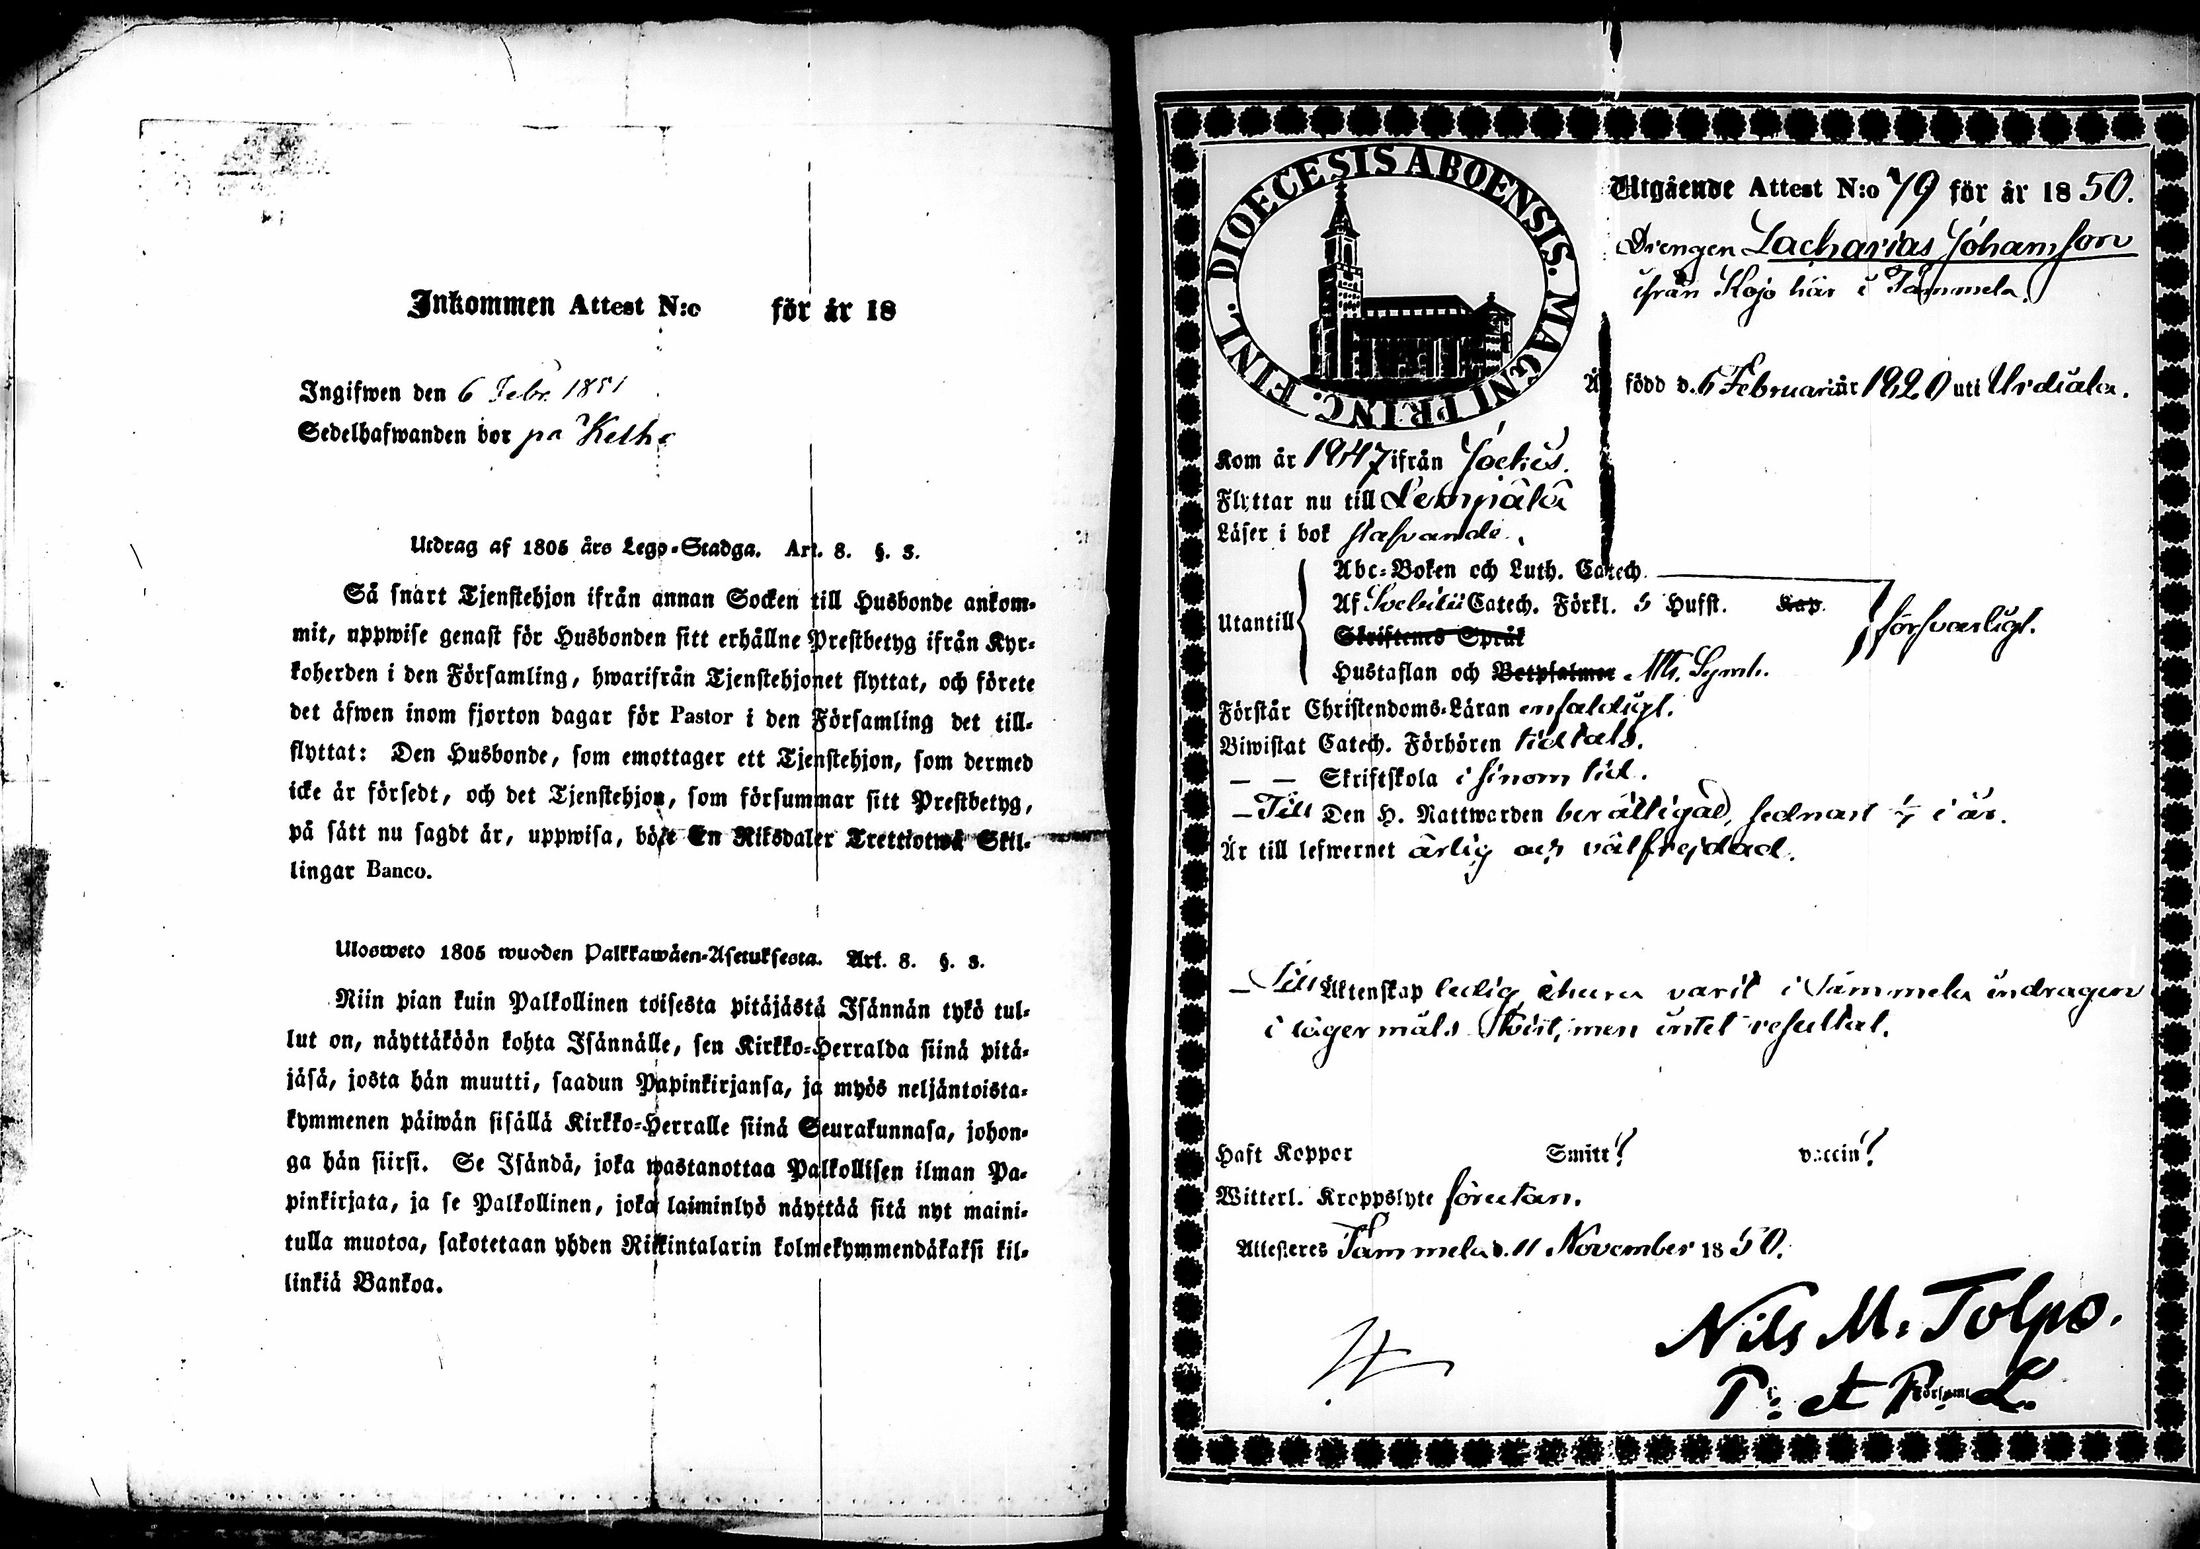 Inkommen Attest N:o för år 18
Ingifwen den 6 Febr. 1851
Sedelhafwanden bor på
Utdrag af 1805 års Lego-Stadga. Art. 8. §. 3.
Så snart Tjenstehjon ifrån annan Socken till Husbonde ankom-
mit, uppwise genast för Husbonden sitt erhållne Prestbetyg ifrån Kyr-
koherden i den Församling, hwarifrån Tjenstehjonet flyttat, och förete
det äfwen inom fjorton dagar för Pastor i den Församling det till-
flyttat: Den Husbonde, som emottager ett Tjenstehjon, som dermed
icke är försedt, och det Tjenstehjon, som försummar sitt Prestbetyg,
på sätt nu sagdt är, uppwisa, böte En Riksdaler Trettiotwå Skil-
lingar Banco.
Ulosweto 1805 wuoden Palkkawäen-Asetuksesta. Art. 8. §. 3.
Niin pian kuin Palkollinen toisesta pitäjästä Isännän tykö tul-
lut on, näyttäköön kohta Isännälle, sen Kirkko-Herralda siinä pitä-
jäsä, josta hän muutti, saadun Papinkirjansa, ja myös neljäntoista-
kymmenen päiwän sisällä Kirkko-Herralle siinä Seurakunnasa, johon-
ga hän siirsi. Se Isändä, joka wastanottaa Palkollisen ilman Pa-
pinkirjata, ja se Palkollinen, joka laiminlyö näyttää sitä nyt maini-
tulla muotoa, sakotetaan yhden Riikintalarin kolmekymmendäkaksi kil-
linkiä Bankoa.
DIOECESIS ABOENSIS. MAGNI PRINC. FINL.
Utgående Attest N:o 79 för år 1850.
Drengen Zacharias Johansson
ifrån Kojo här i Tammela.
Är född d. 6 Februarii år 1820 uti Urdiala.
Kom år 1847 ifrån Jockis.
Flyttar nu till Lempälä
Läser i bok stafvande.
Abc-Boken och Luth. Catech.
Utantill Af Svebilii Catech. Förkl. 5 Hufst. Kap. försvarligt.
Skriftenes Språk
Hustaflan och Betpsalmer Ath. Symb.
Förstår Christendoms-Läran enfaldigt.
Biwistat Catech. Förhören tidtals.
— — Skriftskola i sinom tid.
— Till Den H. Nattwarden berättigad, sednast i år.
Är till lefwernet ärlig och välfrejdad.
— Till Äktenskap ledig, ehuru varit i Tammela indragen
i lägermåls tvist, men intet resultat.
Haft Koppor Smitt? vaccin?
Witterl. Kroppslyte förutan.
Attesteres Tammela d. 11 November 1850.
Nils M. Tolpo.
P. et P. Församl. L.